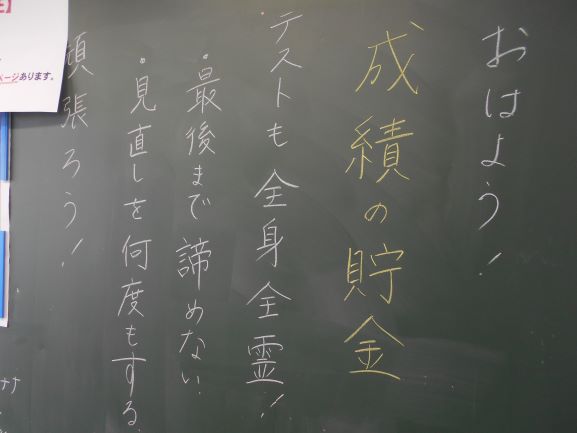 おはよう!
成績の貯金
テストも全身全霊!!
・最後まで諦めない.
・見直しを何度もする.
頑張ろう!
ページあります。